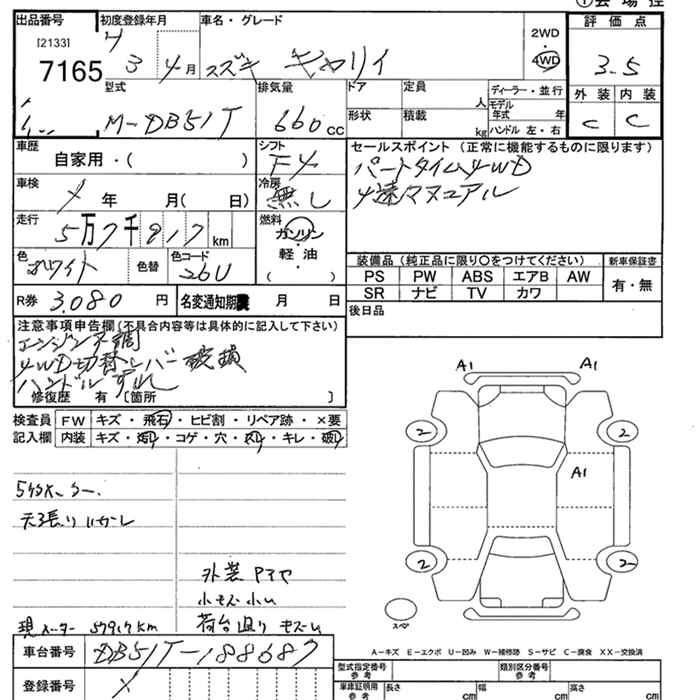 ①会場控
出品番号 初度登録年月 車名・グレード 評価点
[2133]
7165
3年 4月 スズキ キャリイ
2WD
4WD
3.5
型式 排気量 ドア 定員 人 ディーラー・並行
M-DB51T 660cc
形状 積載 kg モデル年式 年
ハンドル 左・右
外装 内装
C C
車歴 自家用・( ) シフト F4
車検 年 月( 日) 冷房 無し
走行 5万7千917km 燃料 ガソリン・軽油・( )
色 ホワイト 色替 色コード 26U
R券 3,080円 名変通知期限 月 日
セールスポイント (正常に機能するものに限ります)
パートタイム4WD
4速マニュアル
装備品 (純正品に限り○をつけてください) 新車保証書
PS PW ABS エアB AW 有・無
SR ナビ TV カワ
後日品
注意事項申告欄 (不具合内容等は具体的に記入して下さい)
エンジン不調
4WD切替レバー破損
ハンドルずれ
修復歴 有 [箇所 ]
検査員 FW キズ・飛石・ヒビ割・リペア跡・×要
記入欄 内装 キズ・汚れ・コゲ・穴・スレ・キレ・破れ
天張り
外装
小キズ小凹
荷台周り キズ凹
現メーター 57917km
A1 A1
2 2
A1
2 2
スペア
A-キズ E-エクボ U-凹み W-補修跡 S-サビ C-腐食 XX-交換済
車台番号 DB51T-188687
登録番号 X
型式指定番号 参考 類別区分番号 参考
車庫証明用 参考 長さ cm 幅 cm 高さ cm